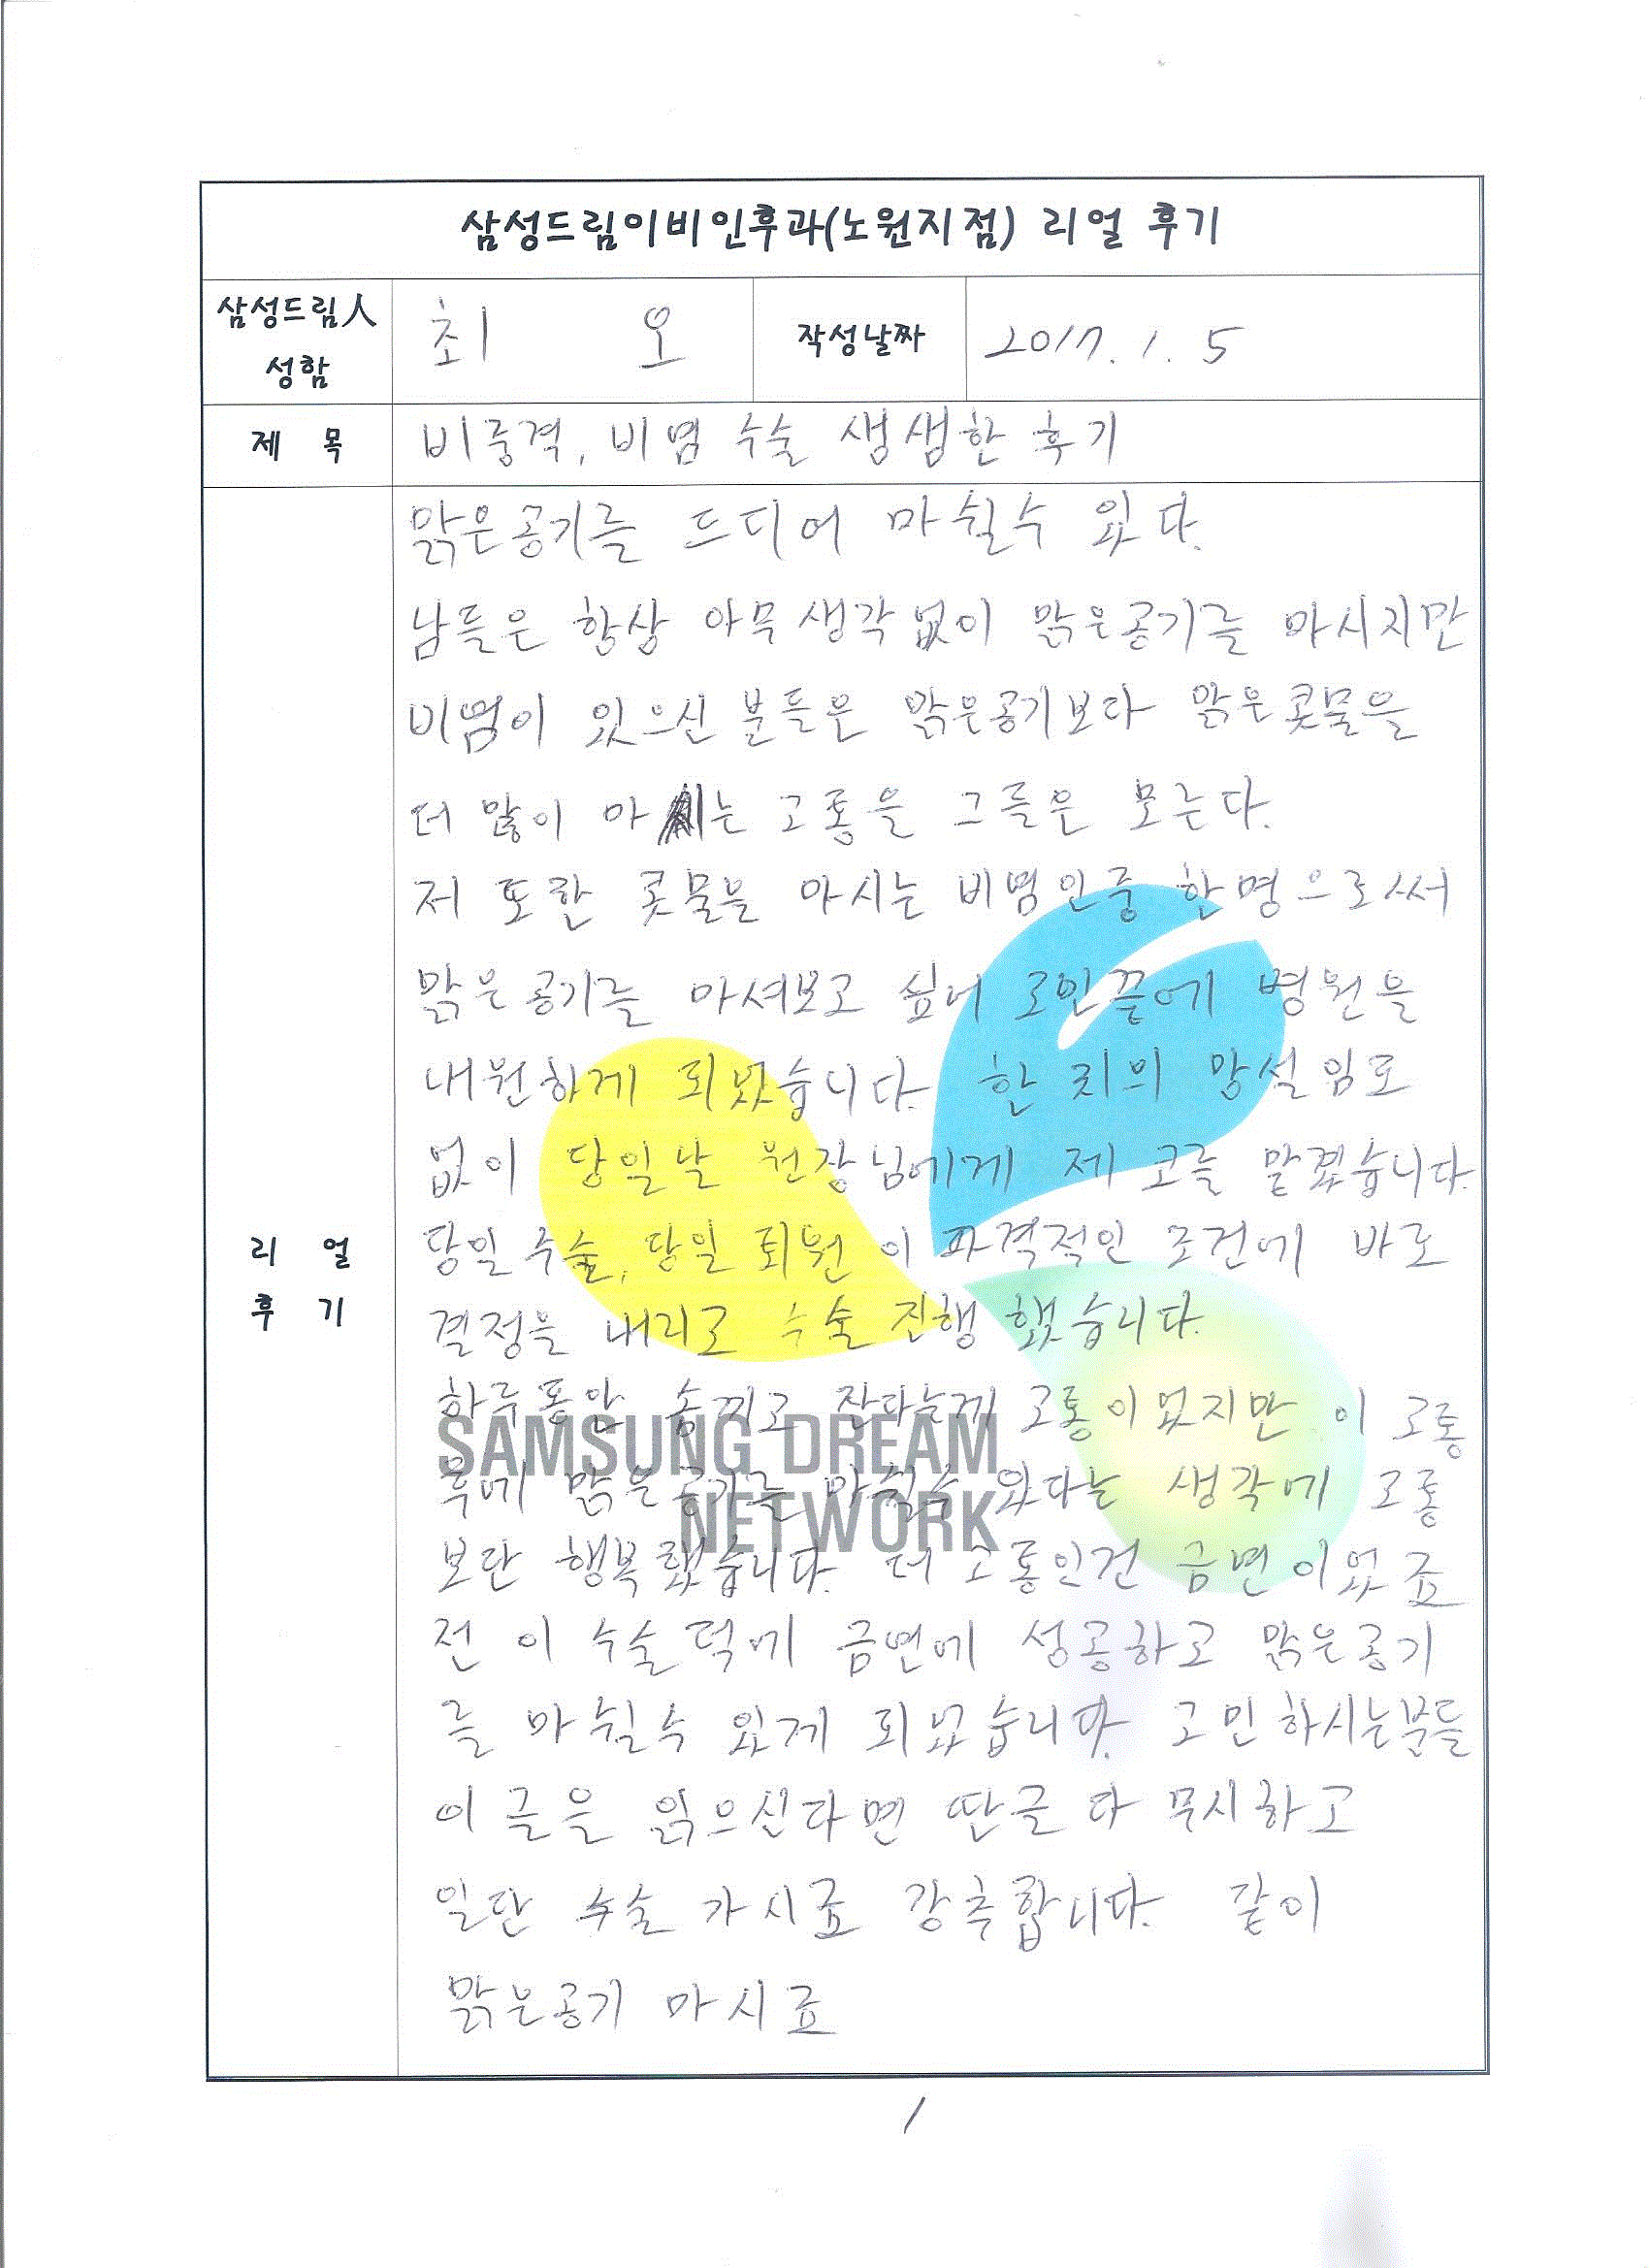 삼성드림이비인후과(노원지점) 리얼 후기
삼성드림人 성함
최 오
작성날짜
2017. 1. 5
제 목
비중격, 비염 수술 생생한 후기
리 얼 후 기
맑은공기를 드디어 마쉴수 있다.
남들은 항상 아무생각없이 맑은공기를 마시지만
비염이 있으신 분들은 맑은공기보다 맑은콧물을
더 많이 마시는 고통을 그들은 모른다.
저 또한 콧물을 마시는 비염인중 한명으로써
맑은공기를 마셔보고 싶어 고민끝에 병원을
내원하게 되었습니다. 한 치의 망설임도
없이 당일날 원장님에게 제 코를 맡겼습니다.
당일수술, 당일 퇴원 이 파격적인 조건에 바로
결정을 내리고 수술 진행 했습니다.
하루동안 솜끼고 잔다는게 고통이었지만 이 고통
후에 맑은공기를 마쉴수 있다는 생각에 고통
보단 행복했습니다. 더 고통인건 금연이었죠
전 이 수술덕에 금연에 성공하고 맑은공기
를 마쉴수 있게 되었습니다. 고민하시는분들
이 글을 읽으신다면 딴글 다 무시하고
일단 수술 가시죠 강추합니다. 같이
맑은공기 마시죠
SAMSUNG DREAM
NETWORK
1